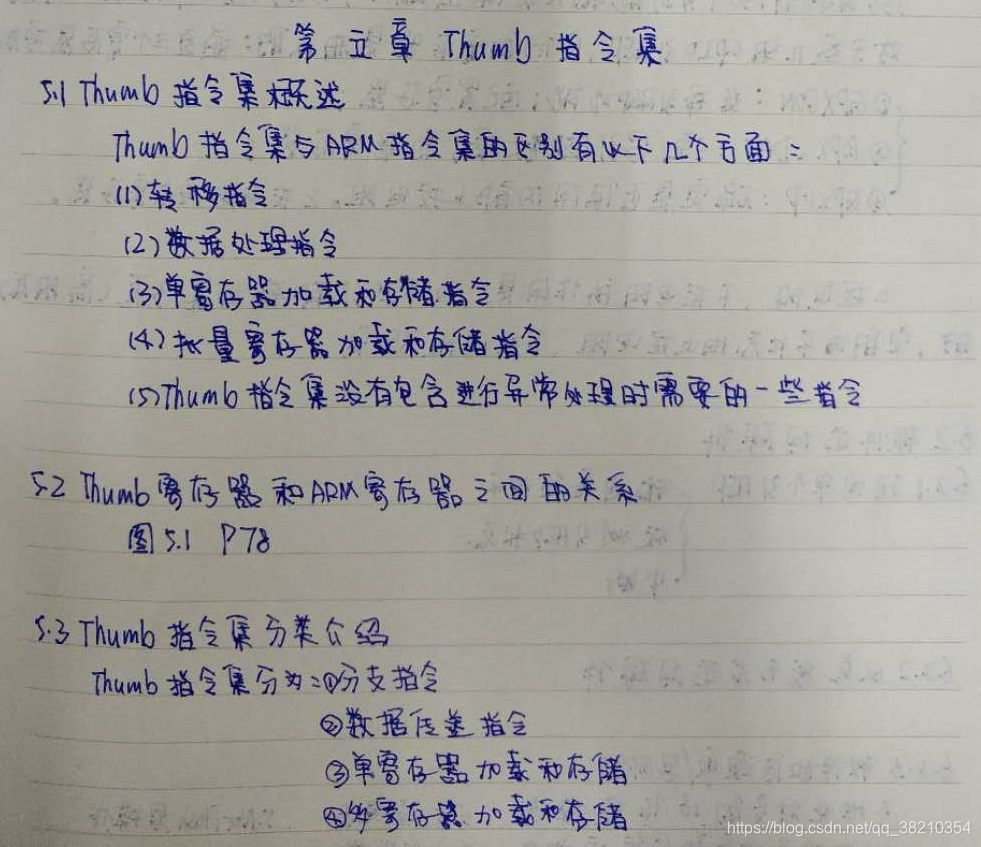 第五章 Thumb 指令集
5.1 Thumb 指令集概述
Thumb 指令集与ARM指令集的区别有以下几个方面:
(1)转移指令
(2)数据处理指令
(3)单寄存器加载和存储指令
(4)批量寄存器加载和存储指令
(5)Thumb指令集没有包含进行异常处理时需要的一些指令
5.2 Thumb寄存器和ARM寄存器之间的关系
图5.1 P78
5.3 Thumb 指令集分类介绍
Thumb指令集分为:①分支指令
②数据传送指令
③单寄存器加载和存储
④多寄存器加载和存储
https://blog.csdn.net/qq_38210354